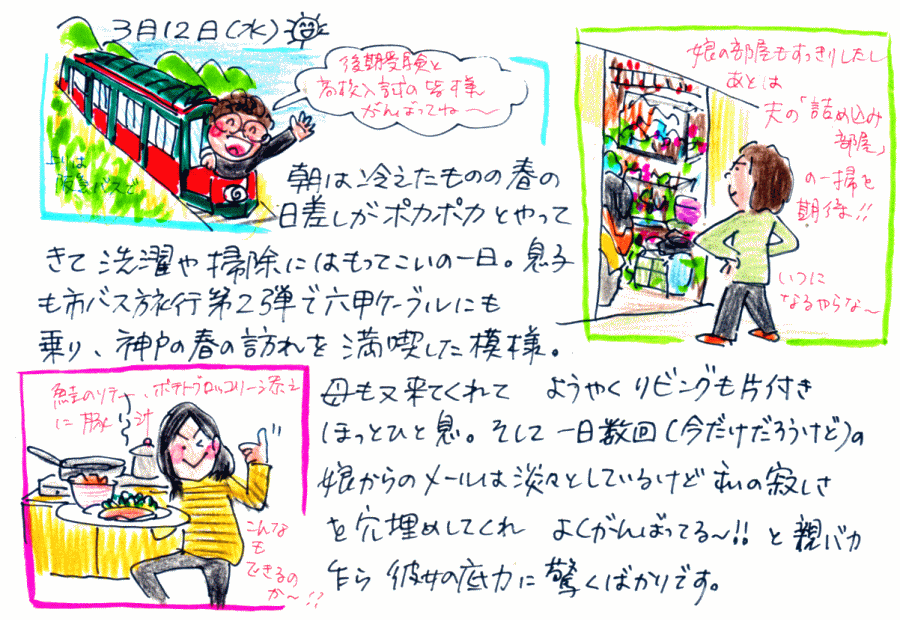 3月12日(水)
後期受験と
高校入試の皆様
がんばってね〜
上りは
阪急バスで
6
娘の部屋もすっきりしたし
あとは
夫の「詰め込み
部屋」
の一掃を
期待!!
いつに
なるやらな〜
朝は冷えたものの春の
日差しがポカポカとやって
きて洗濯や掃除にはもってこいの一日。息子
も市バス旅行第2弾で六甲ケーブルにも
乗り、神戸の春の訪れを満喫した模様。
鮭のソテー、ポテトブロッコリー添え
に豚汁
こんな
も
できるの
か〜!?
母も又来てくれて ようやくリビングも片付き
ほっとひと息。そして一日数回(今だけだろうけど)の
娘からのメールは淡々としているけど私の寂しさ
を穴埋めしてくれ よくがんばってる〜!!と親バカ
乍ら彼女の底力に驚くばかりです。